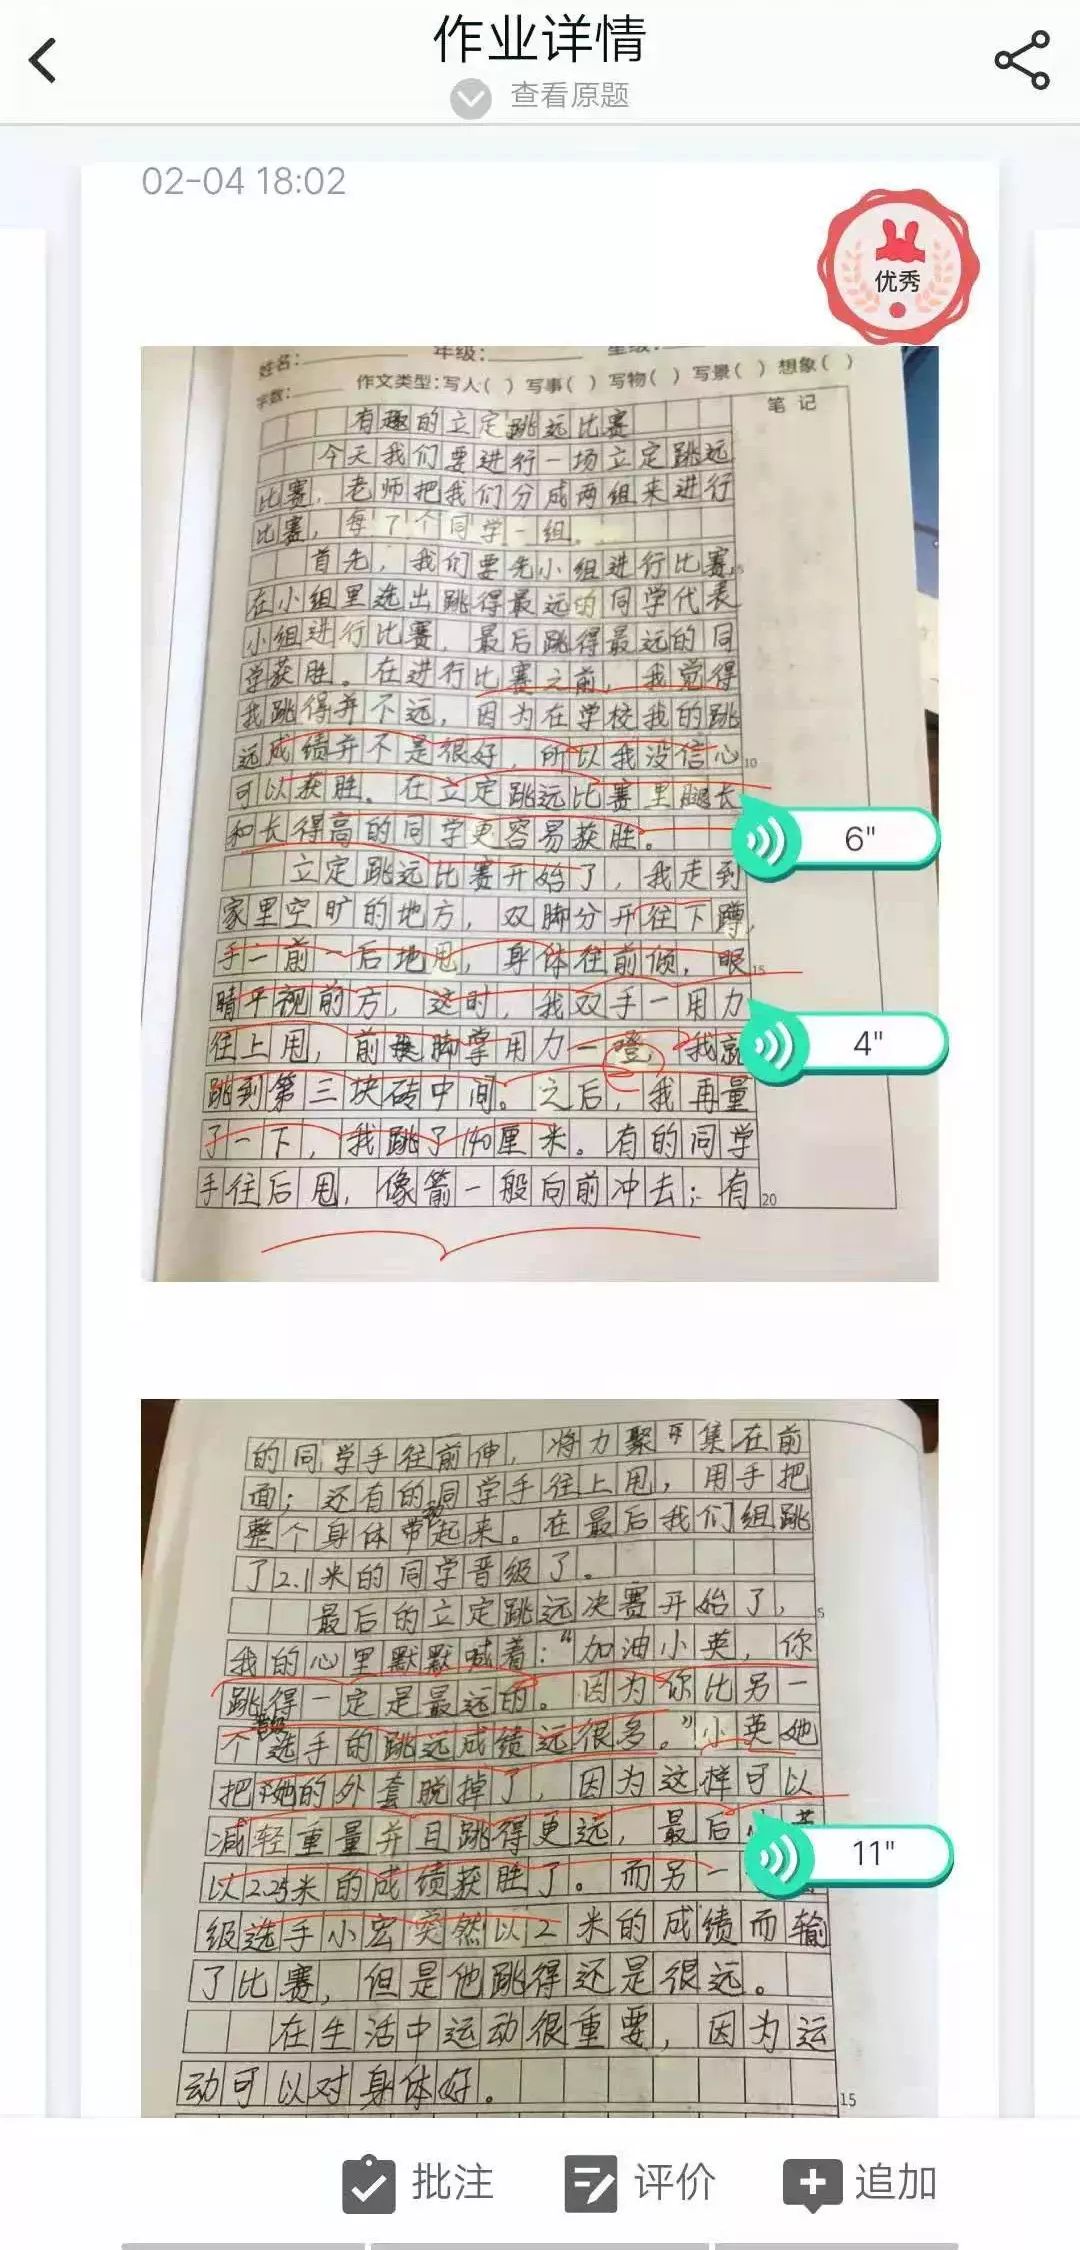 作业详情
查看原题
02-04 18:02
优秀
姓名: 年级: 星级:
字数: 作文类型:写人( ) 写事( ) 写物( ) 写景( ) 想象( )
笔 记
有趣的立定跳远比赛
今天我们要进行一场立定跳远
比赛,老师把我们分成两组来进行
比赛,每7个同学一组。
首先,我们要先小组进行比赛,
5
在小组里选出跳得最远的同学代表
小组进行比赛,最后跳得最远的同
学获胜。在进行比赛之前,我觉得
我跳得并不远,因为在学校我的跳
远成绩并不是很好,所以我没信心
10
可以获胜。在立定跳远比赛里腿长
和长得高的同学更容易获胜。
6"
立定跳远比赛开始了,我走到
家里空旷的地方,双脚分开往下蹲,
手一前一后地甩,身体往前倾,眼
15
睛平视前方,这时,我双手一用力
往上甩,前脚掌用力一噔,我就
4"
跳到第三块砖中间。之后,我再量
了一下,我跳了140厘米。有的同学
手往后甩,像箭一般向前冲去;有
20
的同学手往前伸,将力聚集在前
面;还有的同学手往上甩,用手把
整个身体带动起来。在最后我们组跳
了2.1米的同学晋级了。
最后的立定跳远决赛开始了,
5
我的心里默默喊着:“加油小英,你
跳得一定是最远的。因为你比另一
个晋级选手的跳远成绩远很多。”小英她
把她的外套脱掉了,因为这样可以
减轻重量并且跳得更远,最后小英
11"
以2.25米的成绩获胜了。而另一
级选手小宏突然以2米的成绩而输
了比赛,但是他跳得还是很远。
在生活中运动很重要,因为运
动可以对身体好。
15
批注
评价
追加